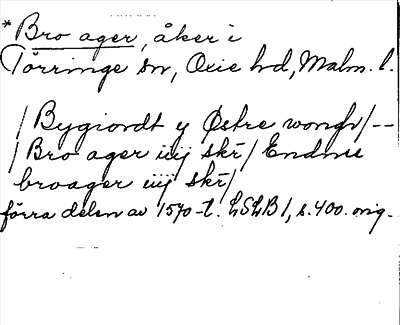 *Bro ager, åker i
Törringe sn, Oxie hd, Malm. l.
/Bygiordt y Østre wongh/--
/Bro ager iiij skr̄/ Endnu
broager iiij skr̄/
förra delen av 1570-t. LSLB 1, s. 400. orig.